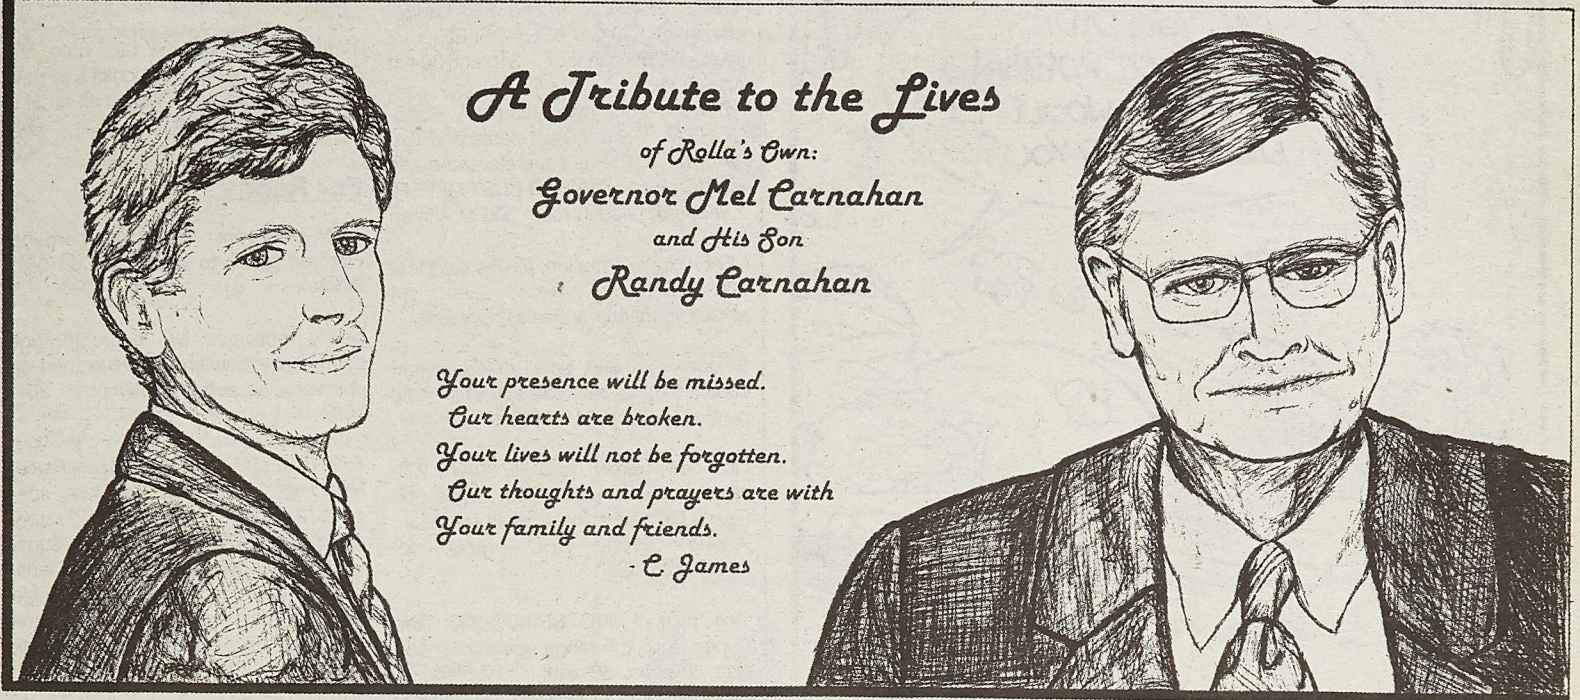 A Tribute to the Lives
of Rolla's Own:
Governor Mel Carnahan
and His Son
Randy Carnahan
Your presence will be missed.
Our hearts are broken.
Your lives will not be forgotten.
Our thoughts and prayers are with
Your family and friends.
- C. James